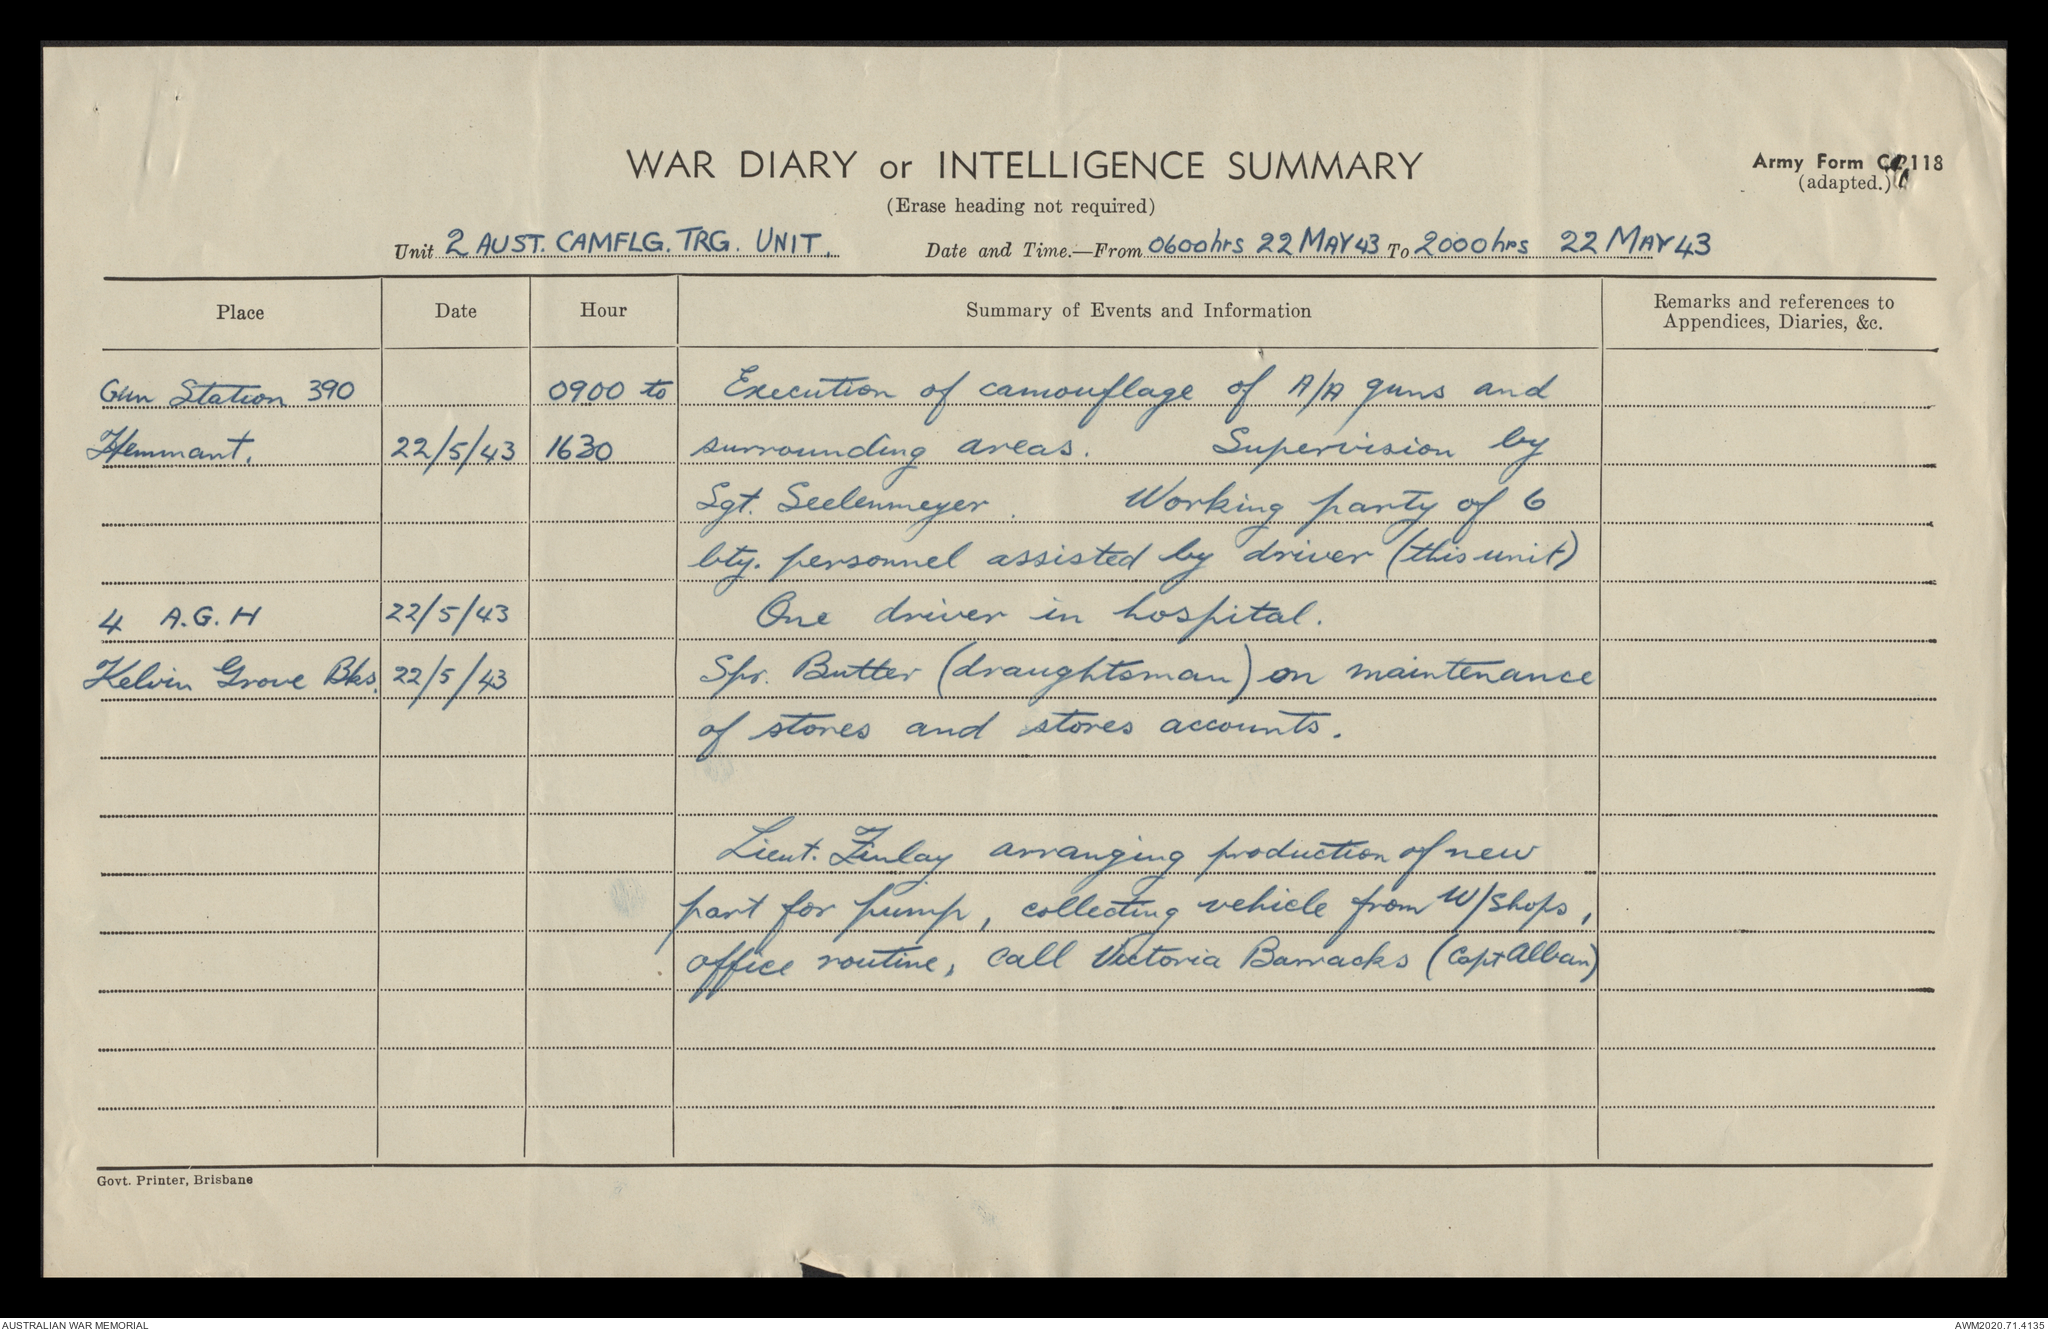 WAR DIARY or INTELLIGENCE SUMMARY
Army Form C2118
(adapted.)
(Erase heading not required)
Unit 2 AUST. CAMFLG. TRG. UNIT. Date and Time.—From 0600hrs 22 MAY 43 To 2000hrs 22 MAY 43
Place Date Hour Summary of Events and Information Remarks and references to
Appendices, Diaries, &c.
Gun Station 390 0900 to Execution of camouflage of A/A guns and
Hemmant. 22/5/43 1630 surrounding areas. Supervision by
Sgt. Seelenmeyer. Working party of 6
bty. personnel assisted by driver (this unit)
4 A.G.H 22/5/43 One driver in hospital.
Kelvin Grove Bks. 22/5/43 Spr. Butter (draughtsman) on maintenance
of stores and stores accounts.
Lieut. Finlay arranging production of new
part for pump, collecting vehicle from W/Shops,
office routine, call Victoria Barracks (Capt Alban)
Govt. Printer, Brisbane
AUSTRALIAN WAR MEMORIAL
AWM2020.71.4135